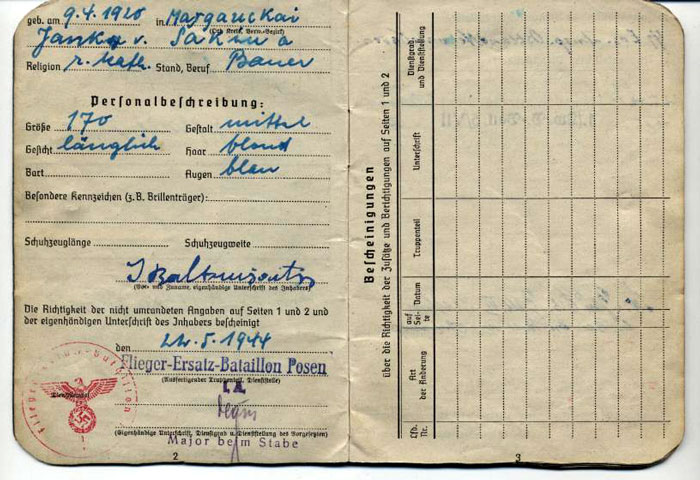 geb. am 9.4.1920 in Margauckai
(Ort, Kreis, Verw.-Bezirk)
Religion r. kath. Stand, Beruf Bauer
Personalbeschreibung:
Größe 170 Gestalt mittel
Gesicht länglich Haar blond
Bart Augen blau
Besondere Kennzeichen (z.B. Brillenträger):
Schuhzeuglänge Schuhzeugweite
(Vor- und Zuname, eigenhändige Unterschrift des Inhabers)
Die Richtigkeit der nicht umrandeten Angaben auf Seiten 1 und 2 und
der eigenhändigen Unterschrift des Inhabers bescheinigt
den 24.5.1944
Flieger-Ersatz-Bataillon Posen
(Ausfertigender Truppenteil, Dienststelle)
I.A.
Dienststempel
(Eigenhändige Unterschrift, Dienstgrad u. Dienststellung des Vorgesetzten)
Major beim Stabe
2
Bescheinigungen
über die Richtigkeit der Zusätze und Berichtigungen auf Seiten 1 und 2
Lfd. Nr.
Art der Änderung
auf Seite
Datum
Truppenteil
Unterschrift
Dienstgrad und Dienststellung
3